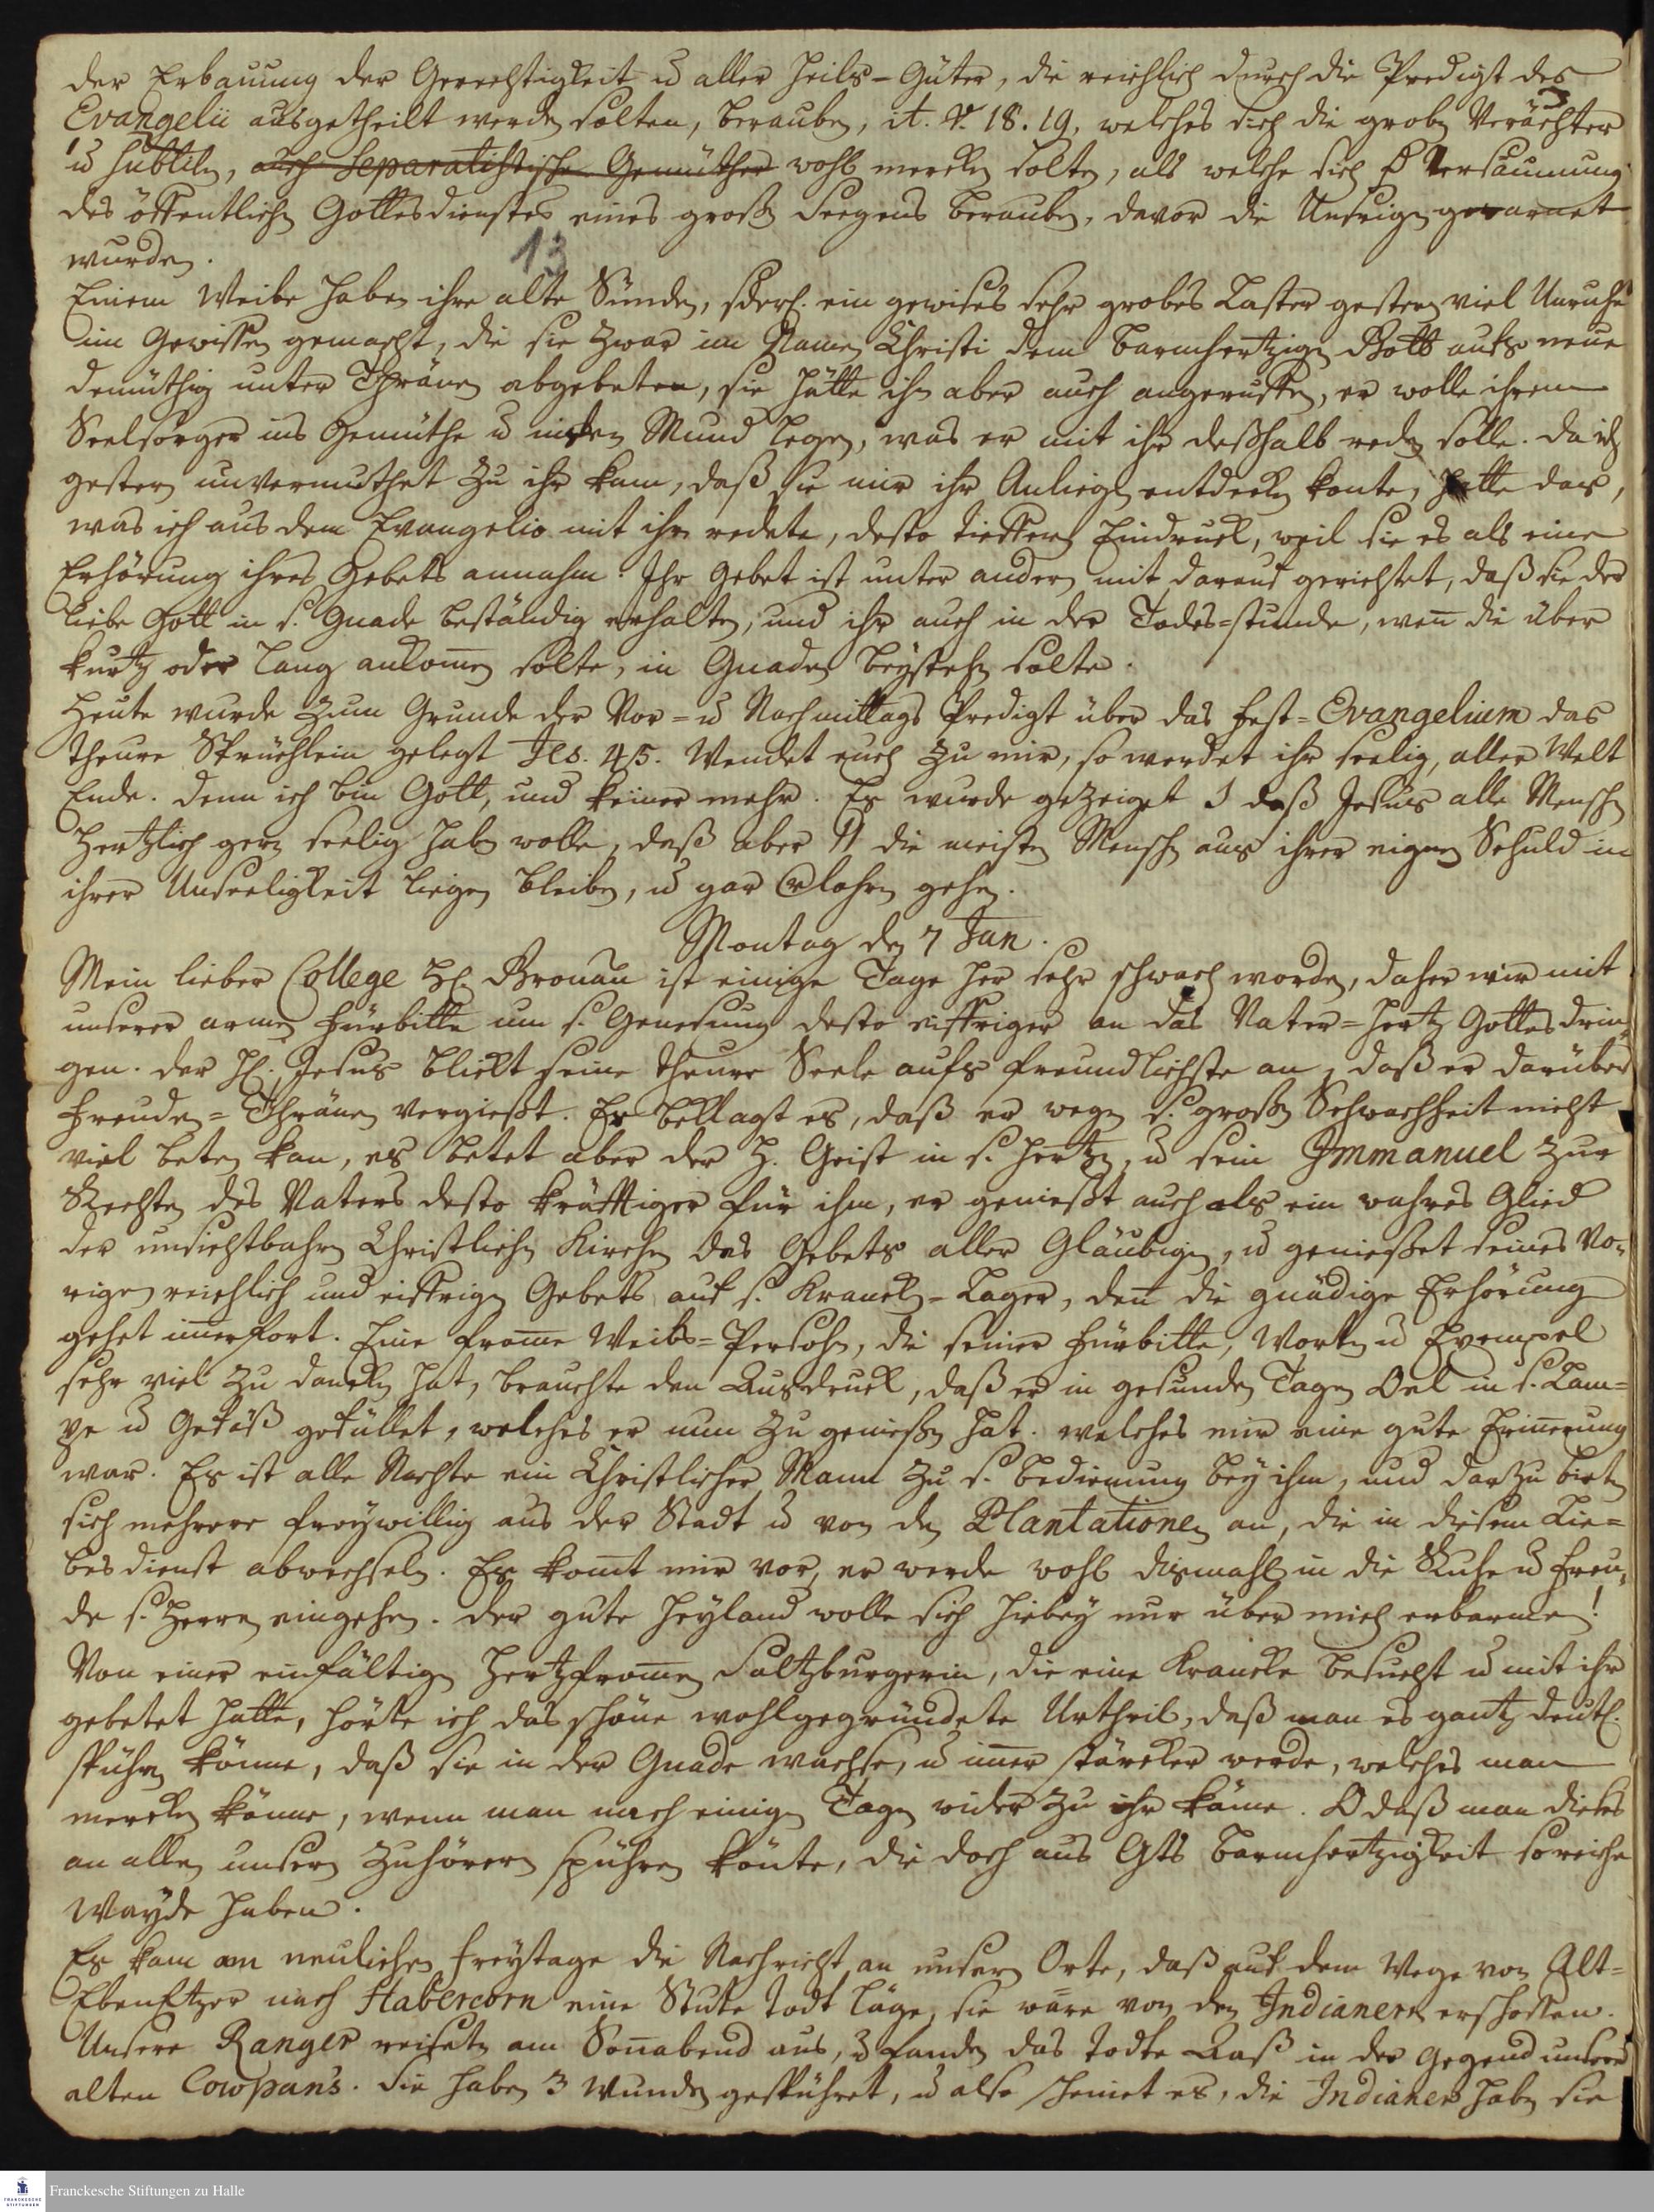 der Erbauung der Gerechtigkeit u aller Heils-Güter, die reichlich durch die Predigt des
Evangelii ausgetheilt werden solten, berauben, it. V. 18. 19, welches sich die groben Verächter
u subtilen, auch Separatistische Gemüther wohl mercken solten, als welche sich Versäumung
des öffentlichen Gottesdienstes eines großen Seegens berauben, davor die Unsrigen gewarnet
wurden.
13
Einem Weibe haben ihre alte Sünden, sderl. ein gewißes sehr grobes Laster gestern viel Unruhe
im Gewissen gemacht, die sie zwar im Namen Christi dem barmhertzigen Gott aufs neue
demüthig unter Thränen abgebeten, sie hätte ihn aber auch angeruffen, er wolle ihrem
Seelsorger ins Gemüthe u in den Mund legen, was er mit ihr deßhalb reden solle. Da ich
gestern unvermuthet zu ihr kam, daß sie mir ihr Anliegen entdecken konte, hatte das,
was ich aus dem Evangelio mit ihr redete, desto tieffern Eindruck, weil sie es als eine
Erhörung ihres Gebets annahm. Ihr Gebet ist unter andern mit darauf gerichtet, daß sie der
liebe Gott in s. Gnade beständig erhalten, und ihr auch in der Todes-stunde, wen̄ die über
kurtz oder lang ankom̄en solte, in Gnaden beystehen solte.
Heute wurde zum Grunde der Vor- u Nachmittags Predigt über das Fest-Evangelium das
theure Sprüchlein gelegt Jes. 45. Wendet euch zu mir, so werdet ihr seelig, aller Welt
Ende. denn ich bin Gott, und keiner mehr. Es wurde gezeiget I daß Jesus alle Menschen
hertzlich gern seelig haben wolle, daß aber II die meisten Menschen aus ihrer eignen Schuld in
ihrer Unseeligkeit liegen bleiben, u gar verlohren gehen.
Montag den 7 Jan.
Mein lieber College H. Gronau ist einige Tage her sehr schwach worden, daher wir mit
unserer armen Fürbitte um s. Genesung desto eiffriger an das Vater-Hertz Gottes drin-
gen. der H. Jesus blickt seine theure Seele aufs freundlichste an, daß er darüber
Freuden-Thränen vergießt. Er beklagt es, daß er wegen s. großen Schwachheit nicht
viel beten kan, es betet aber der H. Geist in s. Hertzen, u sein Immanuel zur
Rechten des Vaters desto kräfftiger für ihn, er genießt auch als ein wahres Glied
der unsichtbahren Christlichen Kirchen das Gebets aller Gläubigen, u genießet seines vo-
rigen reichlich und eiffrigen Gebets auf s. Krancken-Lager, den̄ die gnädige Erhörung
gehet im̄erfort. Eine from̄e Weibs-Persohn, die seiner Fürbitte, Worten u Exempel
sehr viel zu dancken hat, brauchte den Ausdruck, daß er in gesunden Tagen Oel in s. Lam-
pe u Gefäß gefüllet, welches er nun zu genießen hat. welches mir eine gute Erin̄erung
war. Es ist alle Nachte ein Christlicher Mann zu s. Bedienung bey ihm, und darzu bieten
sich mehrere freywillig aus der Stadt u von den Plantationen an, die in diesem Lie-
besdienst abwechseln. Es kom̄t mir vor, er werde wohl dismahl in die Ruhe u Freu-
de s. Herrn eingehen. der gute Heyland wolle sich hiebey nur über mich erbarmen!
Von einer einfältigen hertzfrom̄en Saltzburgerin, die eine Krancke besucht u mit ihr
gebetet hatte, hörte ich das schöne wohlgegründete Urtheil, daß man es gantz deutl.
spühren könne, daß sie in der Gnade wachse, u im̄er stärcker werde, welches man
mercken könne, wenn man nach einigen Tagen wider zu ihr käme. O daß man dieses
an allen unsern Zuhörern spühren könte, die doch aus Gts Barmhertzigkeit so reiche
Wayde haben.
Es kam am neulichen Freytage die Nachricht an unsern Orte, daß auf dem Wege von Alt-
EbenEtzer nach Habercorn eine Stute todt läge, sie wäre von den Indianern erschossen.
Unsere Ranger reiseten am Son̄abend aus, u fanden das todte Aaß in der Gegend unserer
alten Cowpan's. Sie haben 3 Wunden gespühret, u also scheinet es, die Indianer haben sie
Franckesche Stiftungen zu Halle